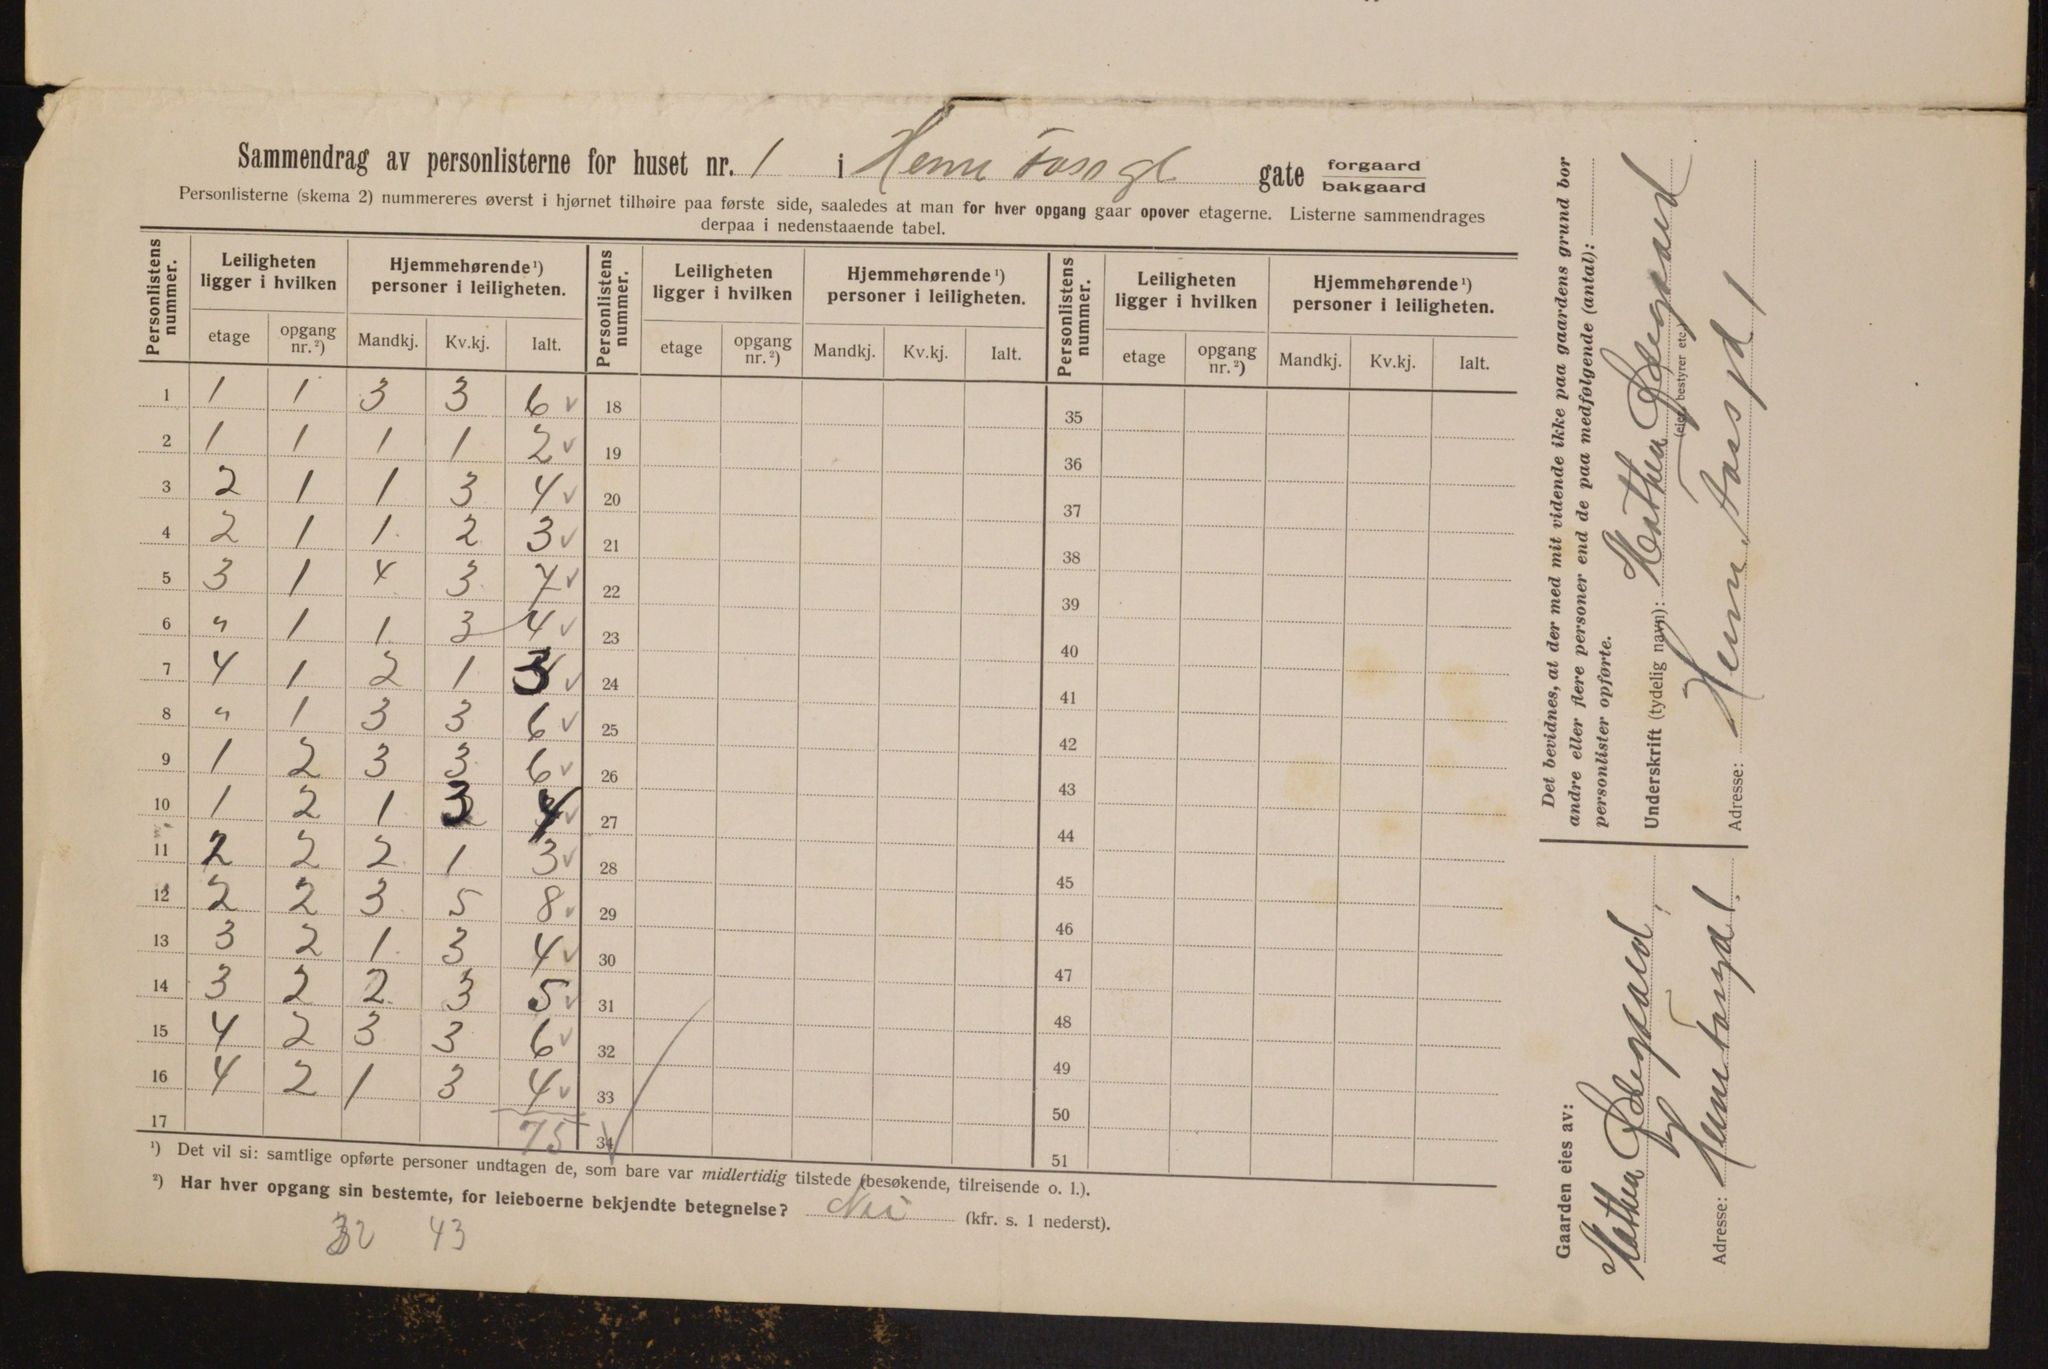 Sammendrag av personlisterne for huset nr. 1 i Herm Fossgt gate forgaard bakgaard
Personlisterne (skema 2) nummereres øverst i hjørnet tilhøire paa første side, saaledes at man for hver opgang gaar opover etagerne. Listerne sammendrages
derpaa i nedenstaaende tabel.
Personlistens nummer. Leiligheten ligger i hvilken Hjemmehørende ¹) personer i leiligheten. Personlistens nummer. Leiligheten ligger i hvilken Hjemmehørende ¹) personer i leiligheten. Personlistens nummer. Leiligheten ligger i hvilken Hjemmehørende ¹) personer i leiligheten.
etage opgang nr. ²) Mandkj. Kv.kj. Ialt. etage opgang nr. ²) Mandkj. Kv.kj. Ialt. etage opgang nr. ²) Mandkj. Kv.kj. Ialt.
1 1 1 3 3 6 ✓ 18 35
2 1 1 1 1 2 ✓ 19 36
3 2 1 1 3 4 ✓ 20 37
4 2 1 1 2 3 ✓ 21 38
5 3 1 4 3 7 ✓ 22 39
6 " 1 1 3 4 ✓ 23 40
7 4 1 2 1 3 ✓ 24 41
8 " 1 3 3 6 ✓ 25 42
9 1 2 3 3 6 ✓ 26 43
10 1 2 1 3 4 ✓ 27 44
11 2 2 2 1 3 ✓ 28 45
12 2 2 3 5 8 ✓ 29 46
13 3 2 1 3 4 ✓ 30 47
14 3 2 2 3 5 ✓ 31 48
15 4 2 3 3 6 ✓ 32 49
16 4 2 1 3 4 ✓ 33 50
17 75 34 51
¹) Det vil si: samtlige opførte personer undtagen de, som bare var midlertidig tilstede (besøkende, tilreisende o. l.).
²) Har hver opgang sin bestemte, for leieboerne bekjendte betegnelse? Nei (kfr. s. 1 nederst).
32 43
Det bevidnes, at der med mit vidende ikke paa gaardens grund bor
andre eller flere personer end de paa medfølgende (antal):
personlister opførte.
Underskrift (tydelig navn): Mathea Ødegaard
(eier, bestyrer etc.)
Adresse: Herm Fossgd 1
Gaarden eies av:
Mathea Ødegaard
Adresse: Herm Fossgd 1.